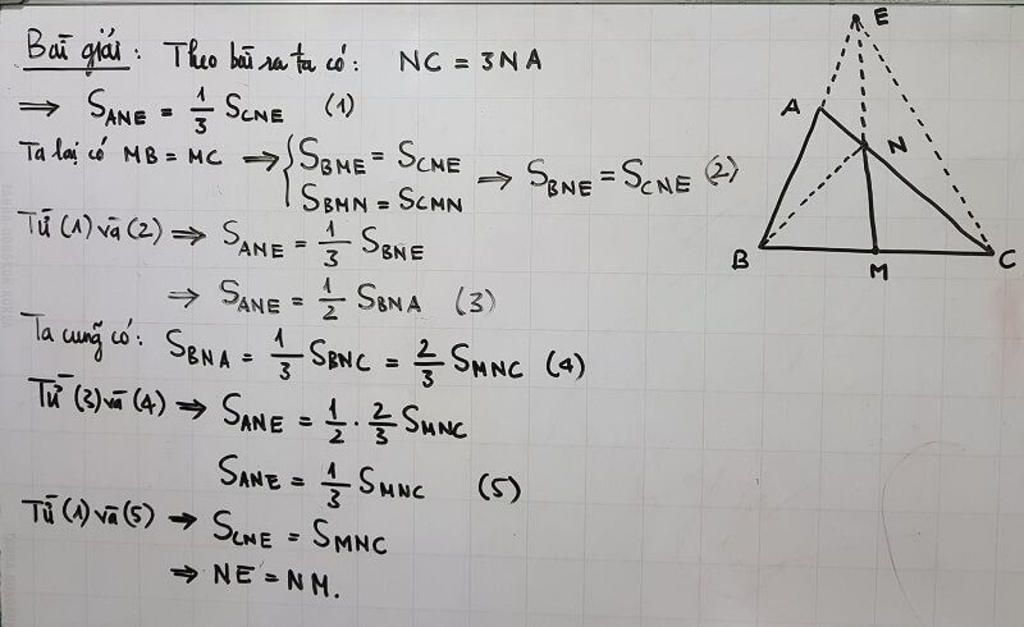 Bài giải: Theo bài ra ta có: NC = 3NA
⇒ S_ANE = 1/3 S_CNE (1)
Ta lại có MB = MC ⇒ { S_BME = S_CME
S_BMN = S_CMN ⇒ S_BNE = S_CNE (2)
Từ (1) và (2) ⇒ S_ANE = 1/3 S_BNE
⇒ S_ANE = 1/2 S_BNA (3)
Ta cũng có: S_BNA = 1/3 S_BNC = 2/3 S_MNC (4)
Từ (3) và (4) ⇒ S_ANE = 1/2 . 2/3 S_MNC
S_ANE = 1/3 S_MNC (5)
Từ (1) và (5) ⇒ S_CNE = S_MNC
⇒ NE = NM.
E
A
N
B
M
C